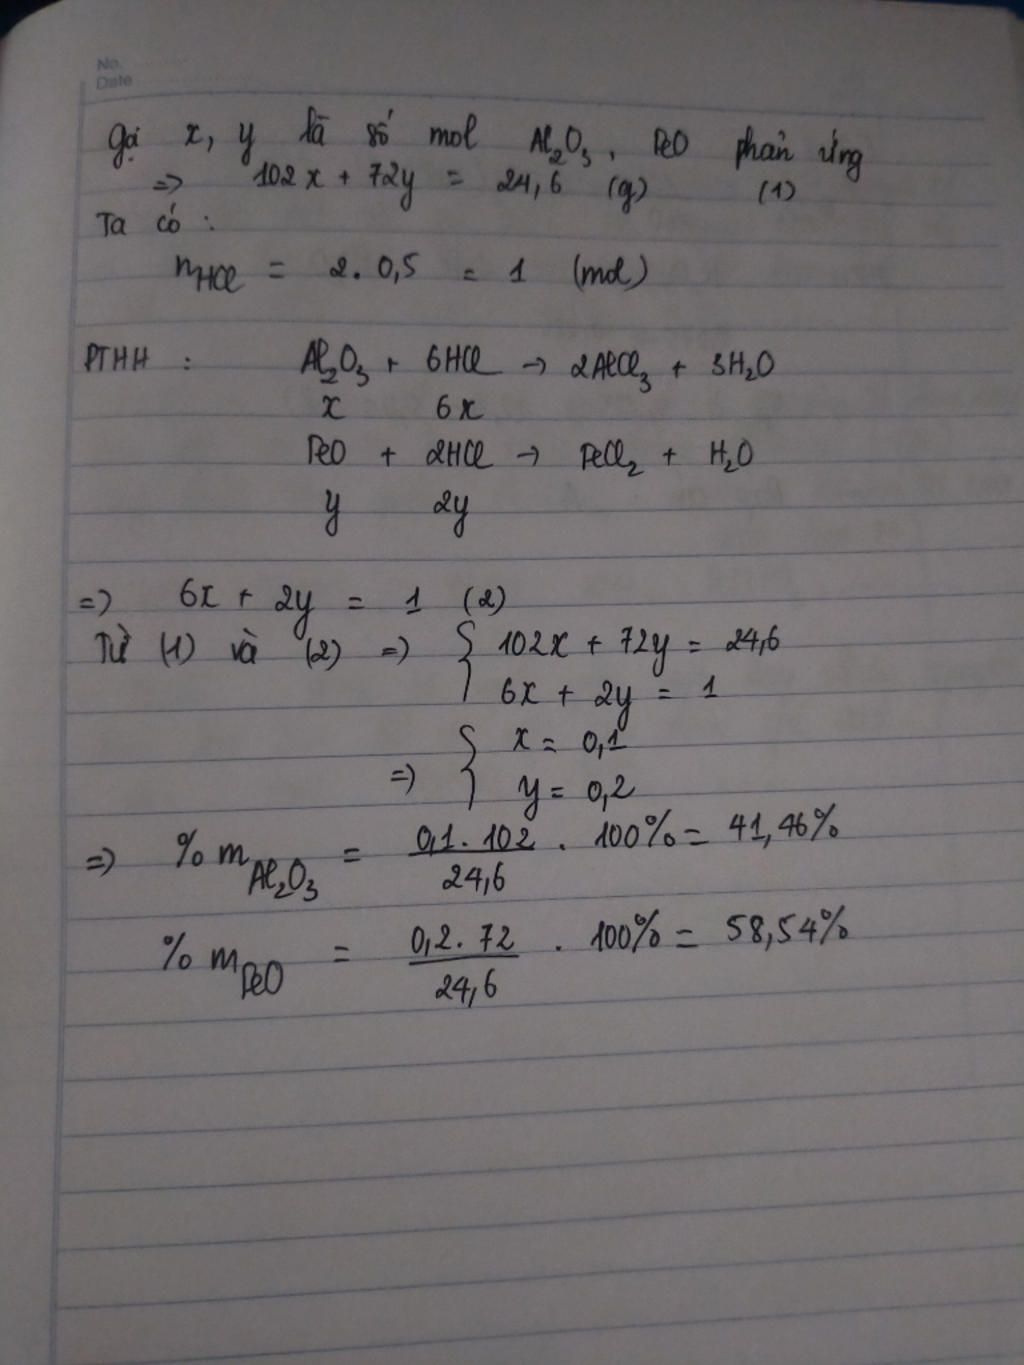 No.
Date
Gọi x, y là số mol Al₂O₃, FeO phản ứng
=> 102x + 72y = 24,6 (g) (1)
Ta có :
nHCl = 2.0,5 = 1 (mol)
PTHH : Al₂O₃ + 6HCl -> 2AlCl₃ + 3H₂O
x 6x
FeO + 2HCl -> FeCl₂ + H₂O
y 2y
=> 6x + 2y = 1 (2)
Từ (1) và (2) => { 102x + 72y = 24,6
6x + 2y = 1
=> { x = 0,1
y = 0,2
=> % mAl₂O₃ = 0,1.102/24,6 . 100% = 41,46%
% mFeO = 0,2.72/24,6 . 100% = 58,54%